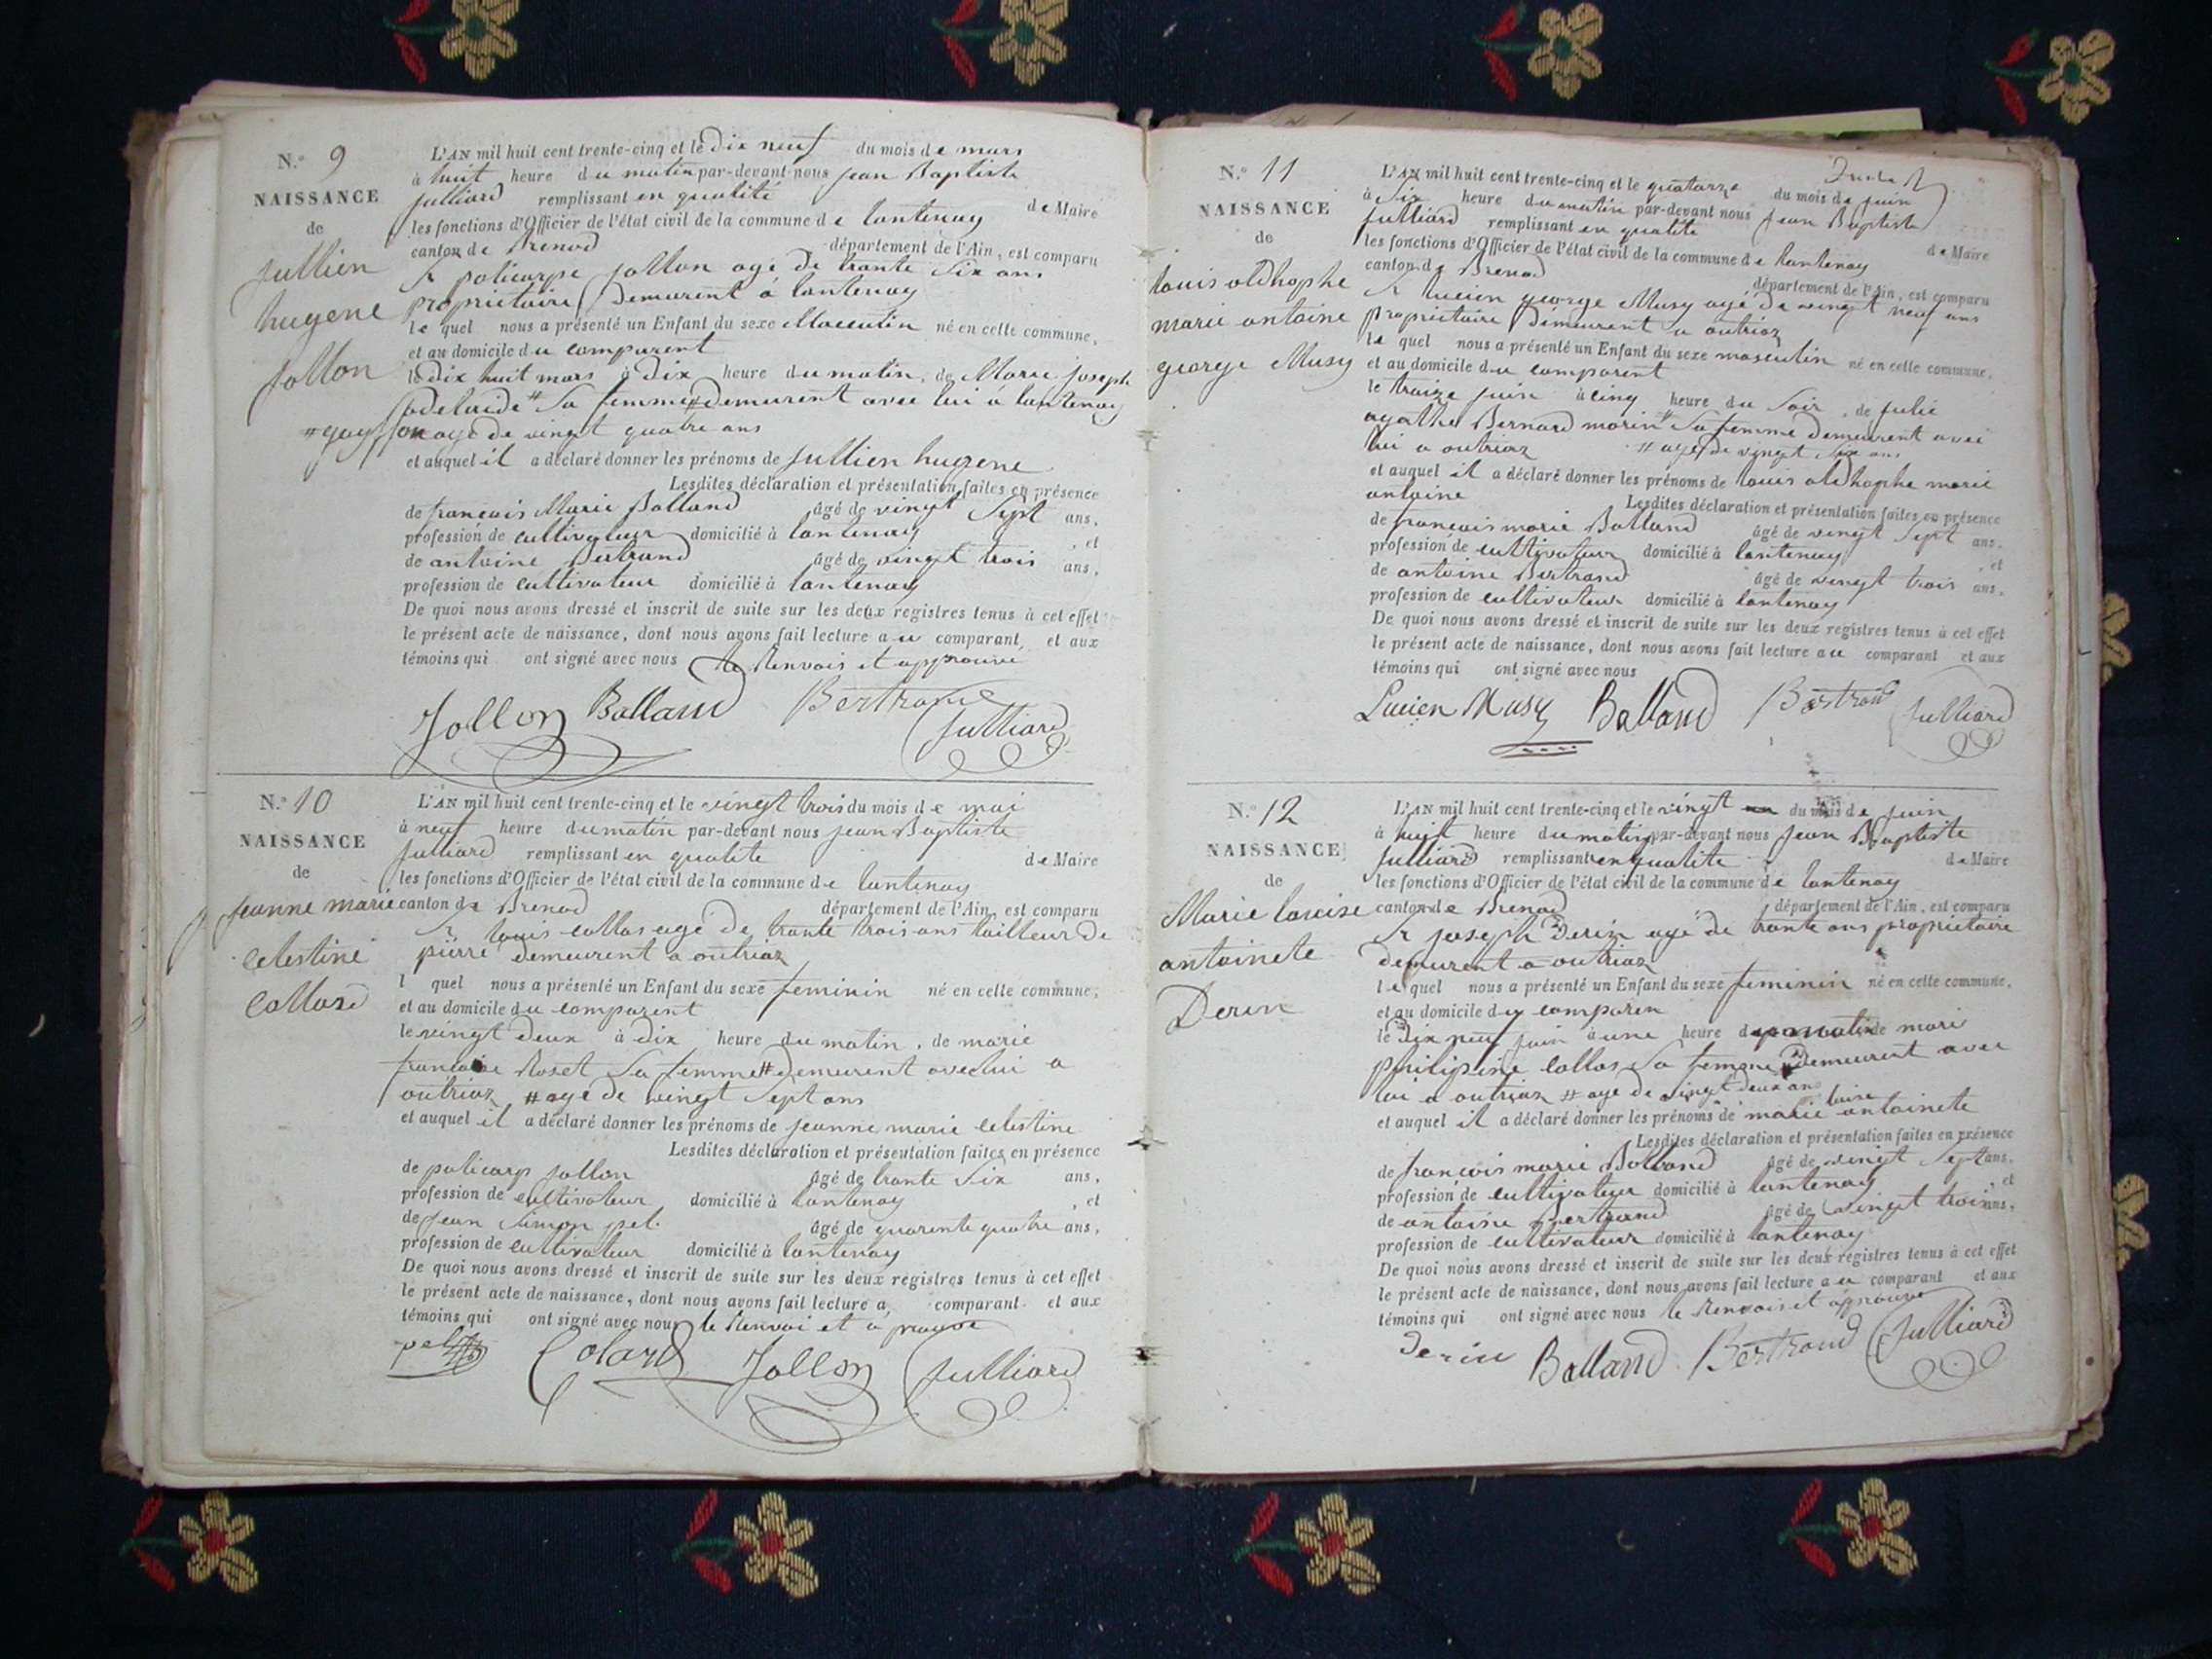 N.º 9
NAISSANCE
de
Jullien
hugene
Jollon
L'AN mil huit cent trente-cinq et le Dix neuf du mois de mars
à huit heure du matin par-devant nous jean Baptiste
Julliard remplissant en qualité de Maire
les fonctions d'Officier de l'état civil de la commune de lantenay
canton de Brenod département de l'Ain, est comparu
Sr policarpe Jollon agé de trante Six ans
propriétaire Demeurent à lantenay
le quel nous a présenté un Enfant du sexe Masculin né en cette commune,
et au domicile du comparent
le dix huit mars à Dix heure du matin, de Marie joseph
adelaide # Sa femme # demeurent avec lui à lantenay
# agé de vingt quatre ans
et auquel il a déclaré donner les prénoms de Jullien hugene
Lesdites déclaration et présentation faites en présence
de francois Marie Balland âgé de vingt Sept ans,
profession de cultivateur domicilié à lantenay, et
de antoine Bertrand âgé de vingt trois ans,
profession de cultivateur domicilié à lantenay
De quoi nous avons dressé et inscrit de suite sur les deux registres tenus à cet effet
le présent acte de naissance, dont nous avons fait lecture au comparant, et aux
témoins qui ont signé avec nous le Renvois et approuvé
Jollon Balland Bertrand Julliard
N.º 10
NAISSANCE
de
jeanne marie
celestine
Collard
L'AN mil huit cent trente-cinq et le vingt trois du mois de mai
à neuf heure du matin par-devant nous jean Baptiste
Julliard remplissant en qualite de Maire
les fonctions d'Officier de l'état civil de la commune de lantenay
canton de Brenod département de l'Ain, est comparu
Sr louis collas agé de trante trois ans tailleur de
pierre demeurent a outriaz
l quel nous a présenté un Enfant du sexe feminin né en cette commune,
et au domicile du comparent
le vingt deux à dix heure du matin, de marie
francoise Roset Sa femme # demeurent avec lui a
outriaz # agé de vingt Sept ans
et auquel il a déclaré donner les prénoms de jeanne marie celestine
Lesdites déclaration et présentation faites en présence
de policarp jollon âgé de trante Six ans,
profession de cultivateur domicilié à lantenay, et
de jean Simon pel. âgé de quarente quatre ans,
profession de cultivateur domicilié à lantenay
De quoi nous avons dressé et inscrit de suite sur les deux registres tenus à cet effet
le présent acte de naissance, dont nous avons fait lecture a comparant et aux
témoins qui ont signé avec nous le Renvoi et a prouve
Colard Jollon Julliard
N.º 11
NAISSANCE
de
louis oldhophe
marie antoine
george Musy
L'AN mil huit cent trente-cinq et le quatorze du mois de juin
à Six heure du matin par-devant nous jean Baptiste
Julliard remplissant en qualité de Maire
les fonctions d'Officier de l'état civil de la commune de lantenay
canton de Brenod département de l'Ain, est comparu
Sr lucien george Musy agé de vingt neuf ans
propriétaire Demeurent a outriaz
le quel nous a présenté un Enfant du sexe masculin né en cette commune,
et au domicile du comparent
le traize juin à cinq heure du Soir, de julie
agathe Bernard morin # Sa femme demeurent avec
lui a outriaz # agé de vingt Six ans
et auquel il a déclaré donner les prénoms de louis oldhophe marie
antoine Lesdites déclaration et présentation faites en présence
de francois marie Balland âgé de vingt Sept ans,
profession de cultivateur domicilié à lantenay, et
de antoine Bertrand âgé de vingt trois ans,
profession de cultivateur domicilié à lantenay
De quoi nous avons dressé et inscrit de suite sur les deux registres tenus à cet effet
le présent acte de naissance, dont nous avons fait lecture au comparant et aux
témoins qui ont signé avec nous
Lucien Musy Balland Bertrand Julliard
N.º 12
NAISSANCE
de
Marie louise
antoinete
Derin
L'AN mil huit cent trente-cinq et le vingt du mois de juin
à huit heure du matin par-devant nous jean Baptiste
Julliard remplissant en qualite de Maire
les fonctions d'Officier de l'état civil de la commune de lantenay
canton de Brenod département de l'Ain, est comparu
Sr joseph Derin agé de trante ans propriétaire
demeurent a outriaz
le quel nous a présenté un Enfant du sexe feminin né en cette commune,
et au domicile du comparen
le Dix neuf juin à une heure du matin de mari
philipine collas Sa femme # Demeurent avec
lui a outriaz # agé de vingt deux ans
et auquel il a déclaré donner les prénoms de marie louise antoinete
Lesdites déclaration et présentation faites en présence
de francois marie Balland âgé de vingt Sept ans,
profession de cultivateur domicilié à lantenay, et
de antoine Bertrand âgé de vingt trois ans,
profession de cultivateur domicilié à lantenay
De quoi nous avons dressé et inscrit de suite sur les deux registres tenus à cet effet
le présent acte de naissance, dont nous avons fait lecture au comparant et aux
témoins qui ont signé avec nous le Renvois et approuvé
Derin Balland Bertrand Julliard